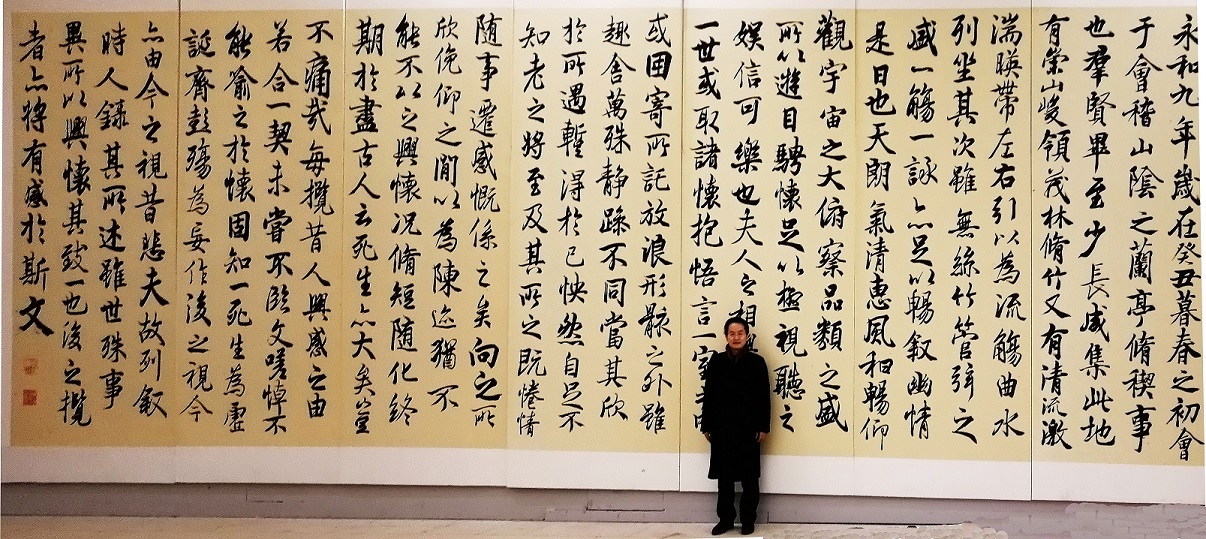 永和九年歲在癸丑暮春之初會
于會稽山陰之蘭亭脩稧事
也羣賢畢至少長咸集此地
有崇山峻領茂林脩竹又有清流激
湍暎帶左右引以為流觴曲水
列坐其次雖無絲竹管弦之
盛一觴一詠亦足以暢叙幽情
是日也天朗氣清惠風和暢仰
觀宇宙之大俯察品類之盛
所以遊目騁懷足以極視聽之
娛信可樂也夫人之相
一世或取諸懷抱悟言一室
或因寄所託放浪形骸之外雖
趣舍萬殊静躁不同當其欣
於所遇蹔得於己怏然自足不
知老之將至及其所之既惓情
随事遷感慨係之矣向之所
欣俛仰之間以為陳迹猶不
能不以之興懷况脩短随化終
期於盡古人云死生亦大矣豈
不痛哉每攬昔人興感之由
若合一契未嘗不臨文嗟悼不
能喻之於懷固知一死生為虛
誕齊彭殤為妄作後之視今
亦由今之視昔悲夫故列叙
時人錄其所述雖世殊事
異所以興懷其致一也後之攬
者亦將有感於斯文